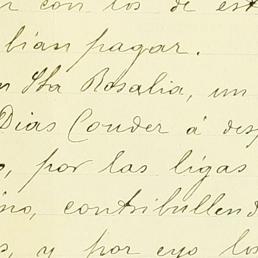 r con los de est
bian pagar.
n Sta Rosalia, un
Dias Conder á des
o, por las ligas
ino, contribullend
s, y por eyo los